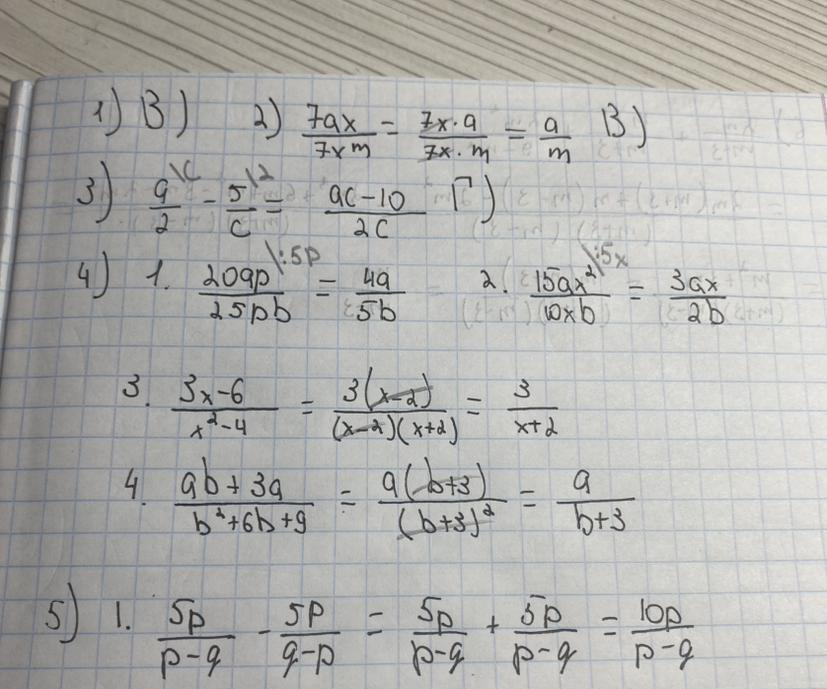 1) В) 2) 7ax/7xm = 7x·a/7x·m = a/m В)
3) a/2 \c - 5/c \2 = ac-10/2c Г)
4) 1. 20ap/25pb \:5p = 4a/5b 2. 15ax²/10xb \:5x = 3ax/2b
3. 3x-6/x²-4 = 3(x-2)/(x-2)(x+2) = 3/x+2
4. ab+3a/b²+6b+9 = a(b+3)/(b+3)² = a/b+3
5) 1. 5p/p-q - 5p/q-p = 5p/p-q + 5p/p-q = 10p/p-q